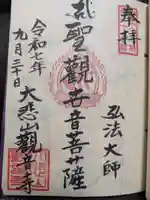 奉拝
弘法大師
聖觀世音菩薩
大悲山觀音寺
令和七年
九月三十日